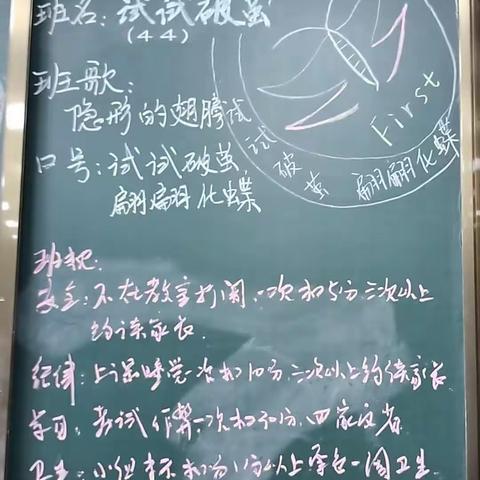 班名：试试破茧
(44)
班歌：
隐形的翅膀
口号：试试破茧
翩翩化蝶
试破茧 翩翩化蝶
First
班规：
安全：不在教室打闹，一次扣5分，三次以上
约谈家长
纪律：上课睡觉一次扣10分，三次以上约谈家长
学习：考试作弊一次扣20分，
卫生：小组 扣 分，以上 一周卫生